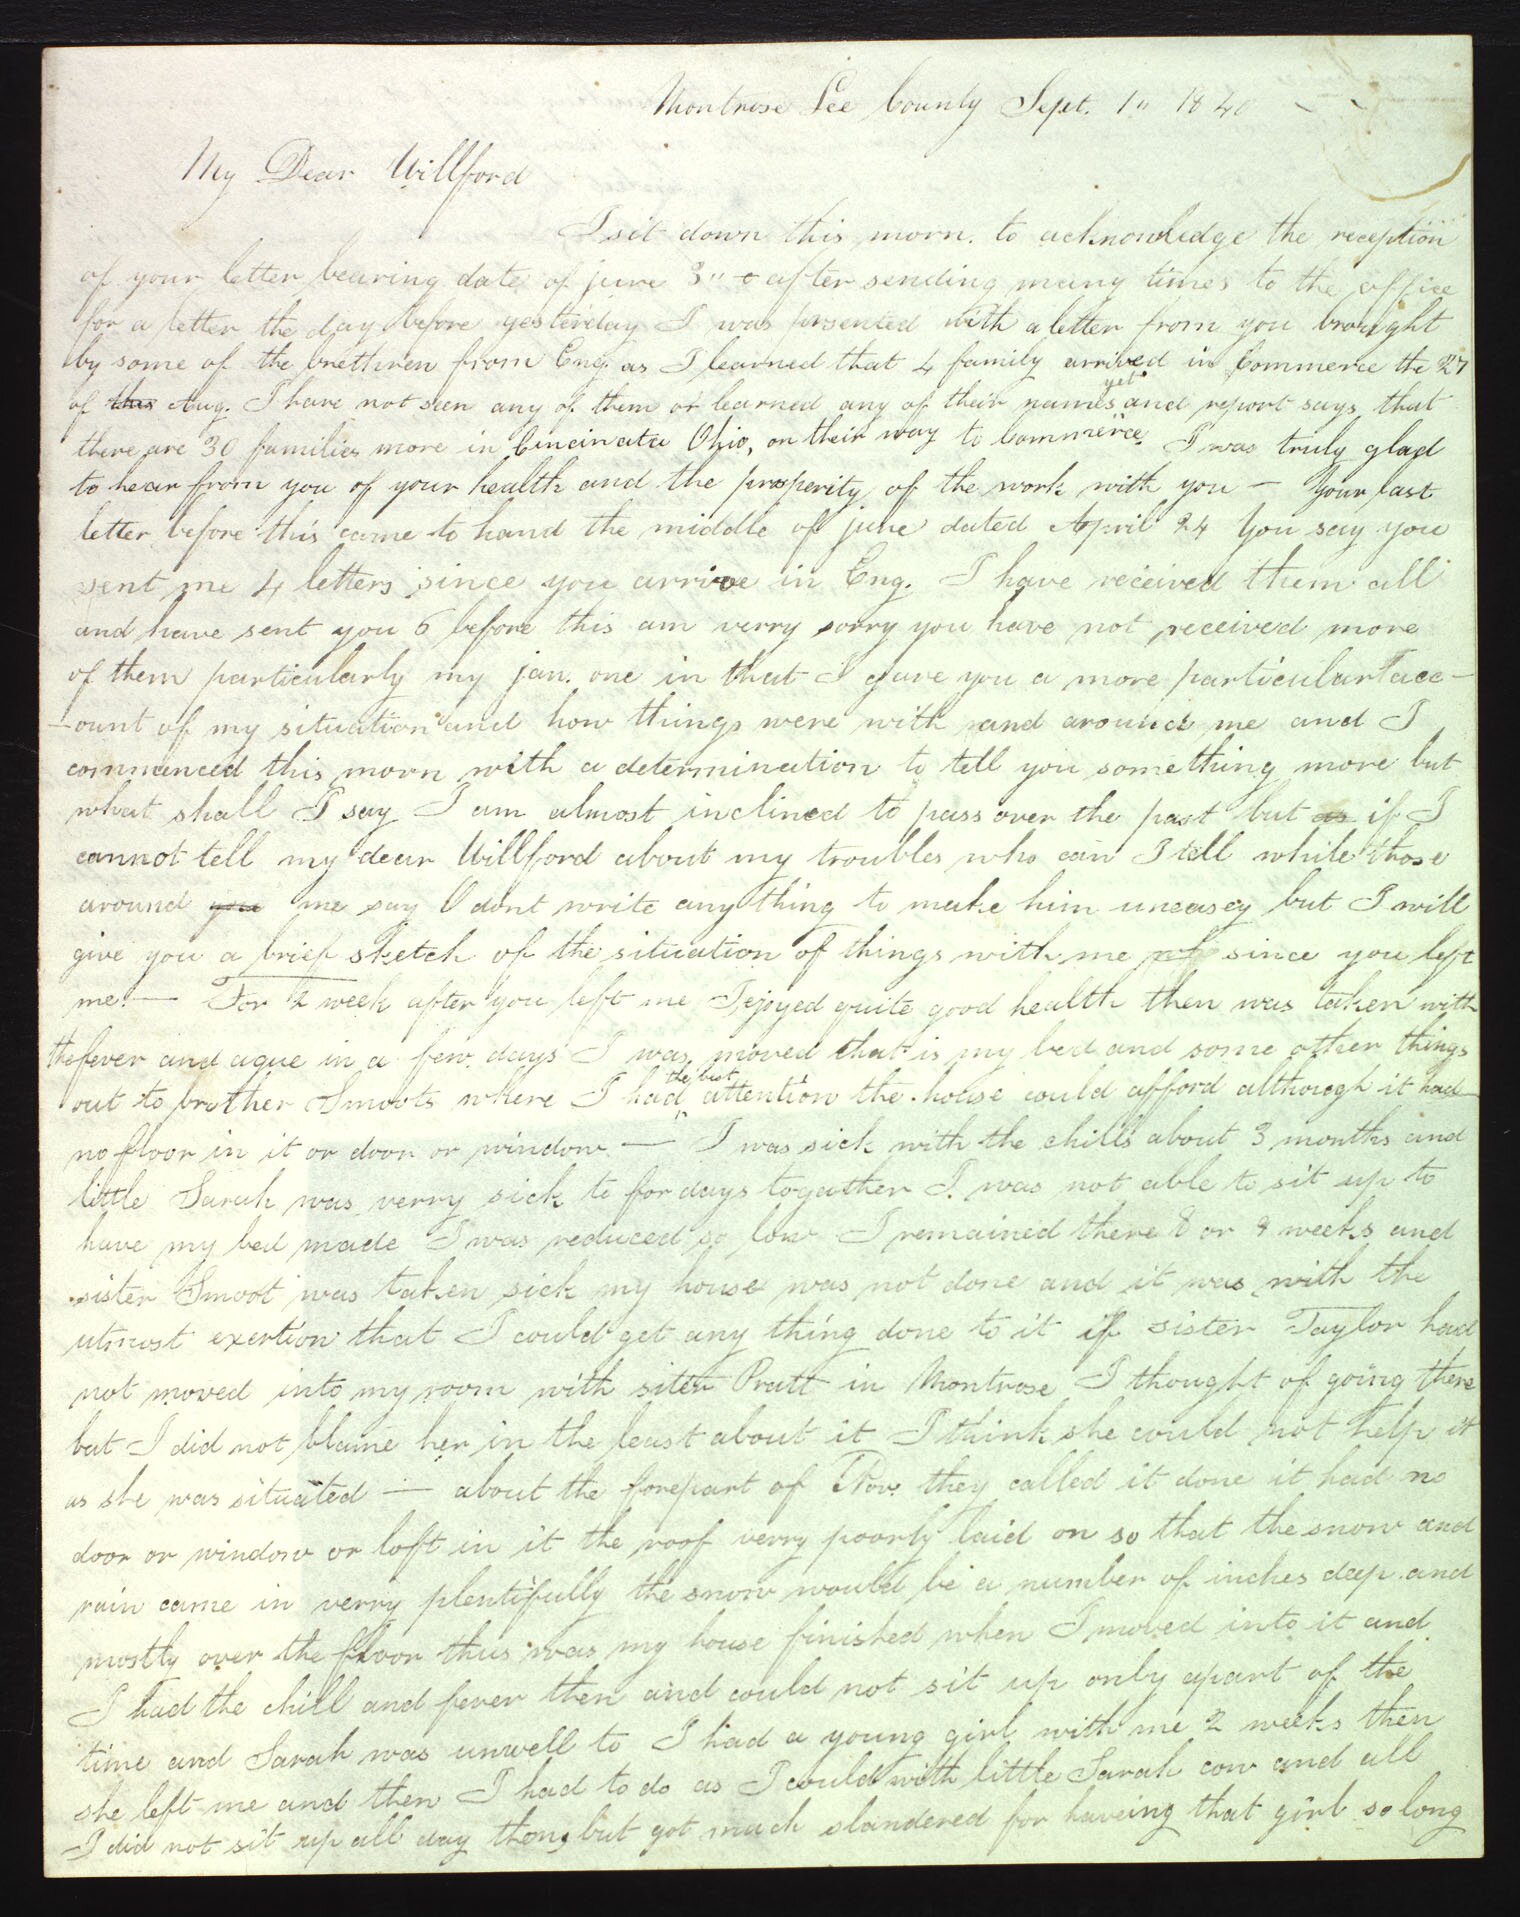 Montrose Lee County Sept. 1" 1840
My Dear Willford
I sit down this morn. to acknowledge the reception
of your letter bearing date of june 3" after sending many times to the office
for a letter the day before yesterday I was prsented with a letter from you brought
by some of the brethren from Eng. as I learned that 4 family arrived in Commerce the 27
of this Aug. I have not seen any of them or learned any of their names yet and report says that
there are 30 families more in Cincinatti Ohio, on their way to Commerce I was truly glad
to hear from you of your health and the prosperity of the work with you — Your last
letter before this came to hand the middle of june dated April 24 You say you
sent me 4 letters since you arrive in Eng. I have received them all
and have sent you 6 before this am verry sorry you have not received more
of them particularly my jan. one in that I gave you a more particular acc-
-ount of my situation and how things were with and around me and I
commenced this morn with a determination to tell you something more but
what shall I say I am almost inclined to pass over the past but as if I
cannot tell my dear Willford about my troubles who can I tell while those
around you me say O dont write any thing to make him uneasy but I will
give you a brief sketch of the situation of things with me since you left
me. — For 2 week after you left me I ejoyed quite good health then was taken with
the fever and ague in a few days I was moved that is my bed and some other things
out to brother Smoots where I had the best attention the house could afford although it had
no floor in it or door or window — I was sick with the chills about 3 months and
little Sarah was verry sick to for days togather I was not able to sit up to
have my bed made I was reduced so low I remained there 8 or 9 weeks and
sister Smoot was taken sick my house was not done and it was with the
utmost exertion that I could get any thing done to it if sister Taylor had
not moved into my room with siter Pratt in Montrose I thought of going there
but I did not blame her in the least about it I think she could not help it
as she was situated — about the forepart of Nov. they called it done it had no
door or window or loft in it the roof verry poorly laid on so that the snow and
rain came in verry plentifully the snow would be a number of inches deep and
mostly over the floor thus was my house finished when I moved into it and
I had the chill and fever then and could not sit up only apart of the
time and Sarah was unwell to I had a young girl with me 2 weeks then
she left me and then I had to do as I could with little Sarah cow and all
I did not sit up all day then, but got much slandered for haveing that girl so long